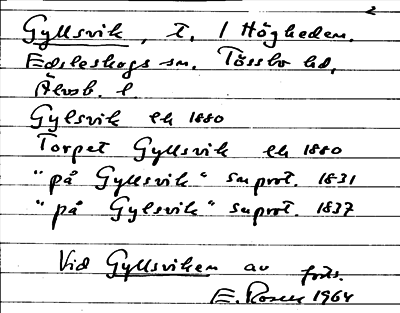 2
Gyllsvik, t. / Högheden.
Edsleskogs sn. Tössbo hd,
Älvsb. l.
Gylsvik ek 1880
Torpet Gyllsvik ek 1880
"på Gyllsvik" snprot. 1831
"på Gylsvik" snprot. 1837
Vid Gyllsviken av
E. Rosell 1964